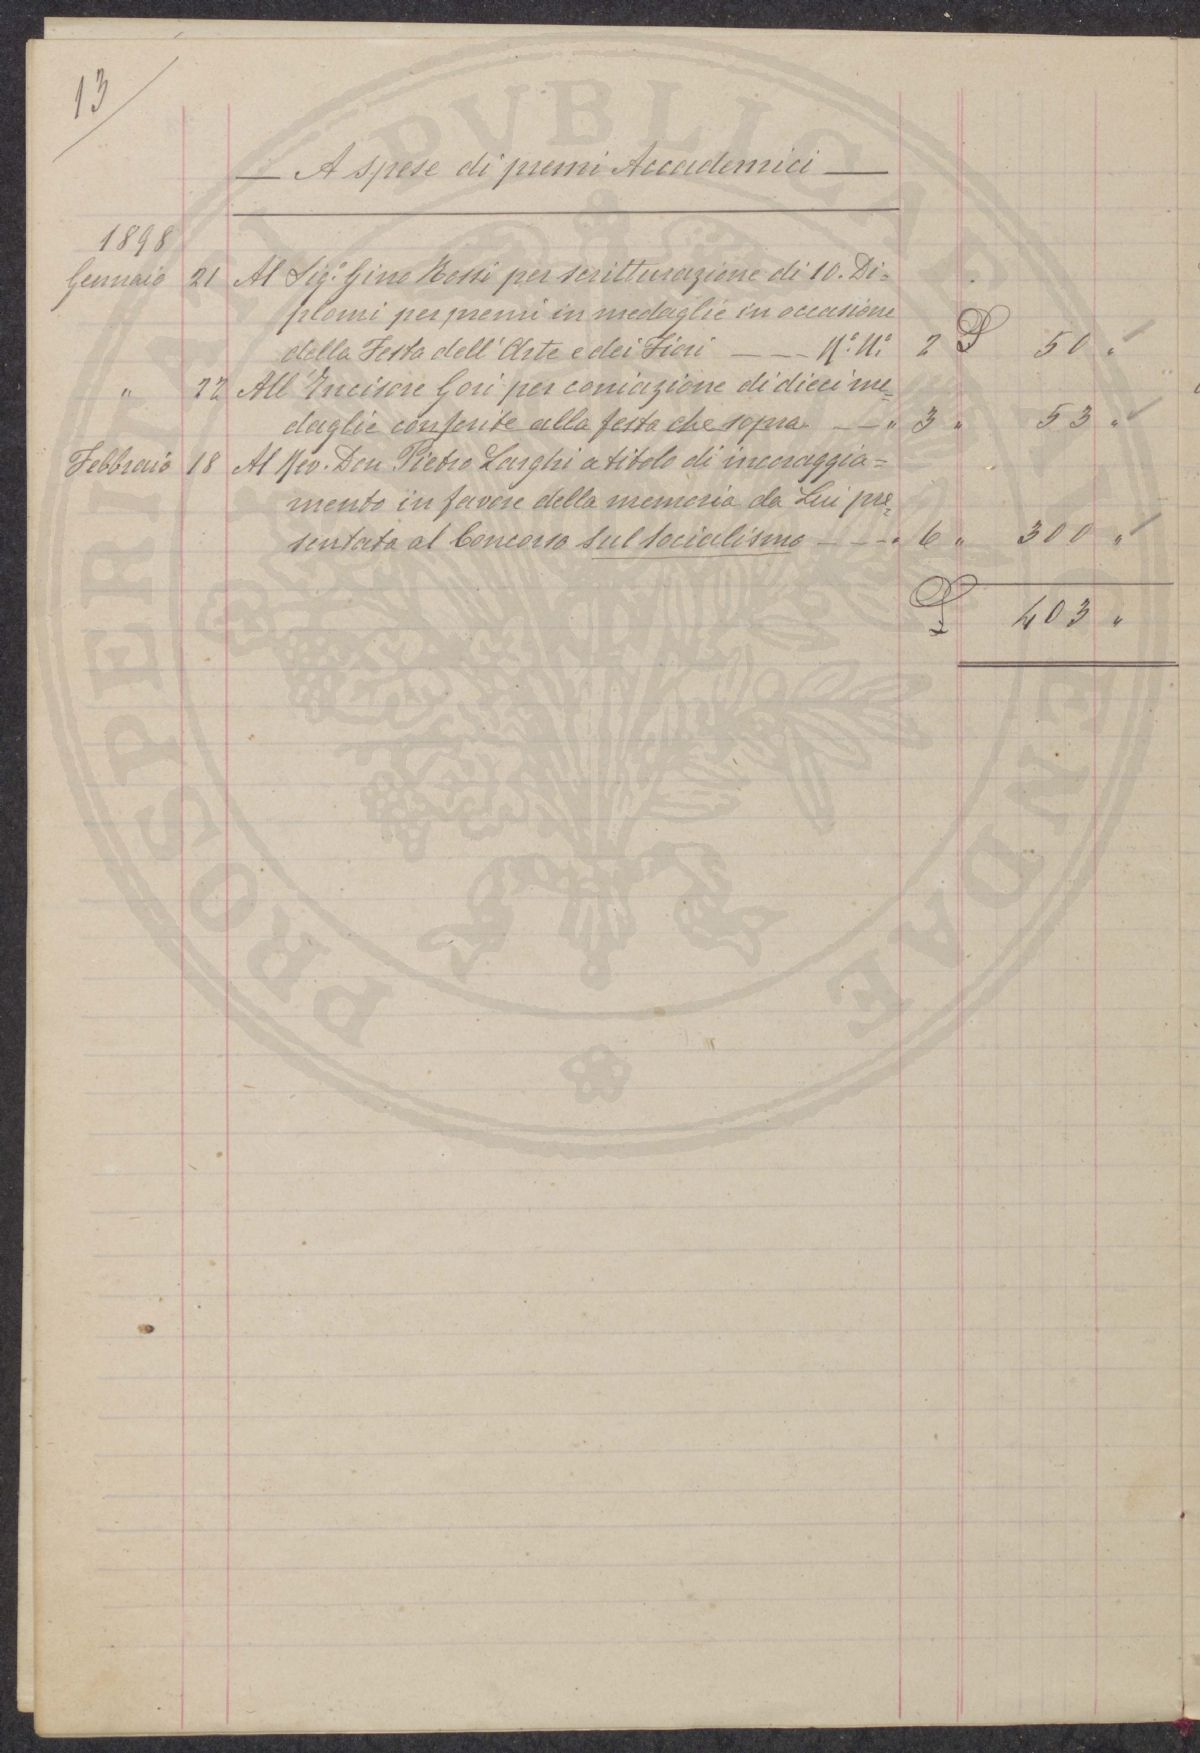 13
A spese di premi Accademici
1898
Gennaio 21 Al Sig.r Gino Rossi per scritturazione di 10. Di=
plomi per premi in medaglie in occasione
della Festa dell'Arte e dei Fiori N.o U.o 2 £ 50 "
" 22 All'Incisore Gori per coniazione di dieci me=
daglie conferite alla festa che sopra " 3 " 53 "
Febbraio 18 Al Rev. Don Pietro Larghi a titolo di incoraggia=
mento in favore della memoria da Lui pre=
sentata al Concorso sul socialismo " 6 " 300 "
£ 403 "
PROSPERITATI PVBLICAE AVGENDAE